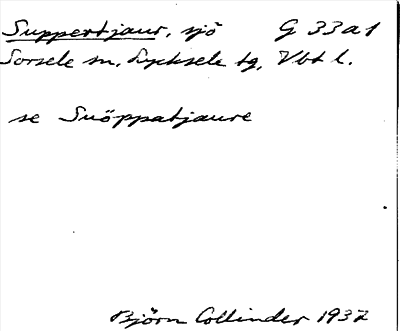 Suppertjaur, sjö G 33 a 1
Sorsele sn, Lycksele tg, Vbt l.
se Suöppatjaure
Björn Collinder 1937